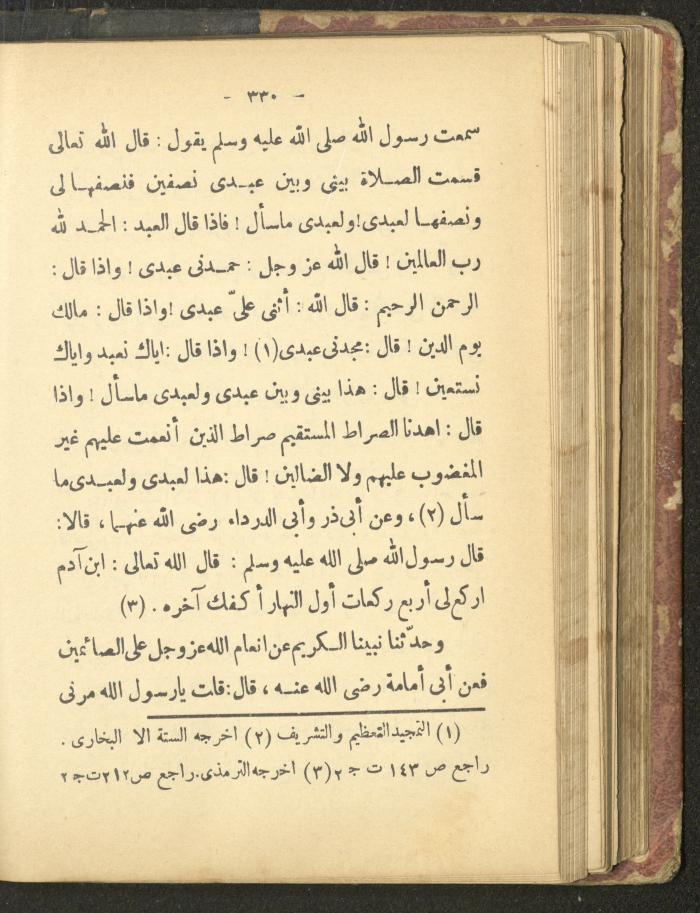 - ٣٣٠ -
سمعت رسول الله صلى الله عليه وسلم يقول : قال الله تعالى
قسمت الصلاة بينى وبين عبدى نصفين فنصفها لى
ونصفها لعبدى! ولعبدى ماسأل ! فاذا قال العبد : الحمد لله
رب العالمين ! قال الله عز وجل : حمدنى عبدى ! واذا قال :
الرحمن الرحيم : قال الله : أثنى علىّ عبدى ! واذا قال : مالك
يوم الدين ! قال : مجدنى عبدى (١) ! واذا قال : اياك نعبد واياك
نستعين ! قال : هذا بينى وبين عبدى ولعبدى ماسأل ! واذا
قال : اهدنا الصراط المستقيم صراط الذين أنعمت عليهم غير
المغضوب عليهم ولا الضالين ! قال : هذا لعبدى ولعبدى ما
سأل (٢) ، وعن أبى ذر وأبى الدرداء رضى الله عنهما ، قالا :
قال رسول الله صلى الله عليه وسلم : قال الله تعالى : ابن آدم
اركع لى أربع ركعات أول النهار أكفك آخره . (٣)
وحدّثنا نبينا الكريم عن انعام الله عز وجل على الصائمين
فعن أبى أمامة رضى الله عنه ، قال : قلت يارسول الله مرنى
(١) التمجيد التعظيم والتشريف (٢) اخرجه الستة الا البخارى .
راجع ص ١٤٣ ت ج ٢ (٣) اخرجه الترمذى. راجع ص ٢١٢ ت ج ٢